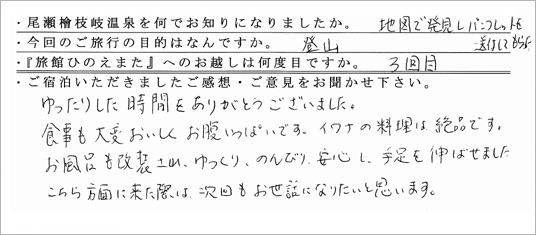 ・尾瀬檜枝岐温泉を何でお知りになりましたか。 地図で発見しパンフレットを
送付してもらう
・今回のご旅行の目的はなんですか。 登山
・『旅館ひのえまた』へのお越しは何度目ですか。 3回目
・ご宿泊いただきましたご感想・ご意見をお聞かせ下さい。
ゆったりした時間をありがとうございました。
食事も大変おいしくお腹いっぱいです。イワナの料理は絶品です。
お風呂も改装され、ゆっくり、のんびり、安心し、手足を伸ばせました
こちら方面に来た際は、次回もお世話になりたいと思います。